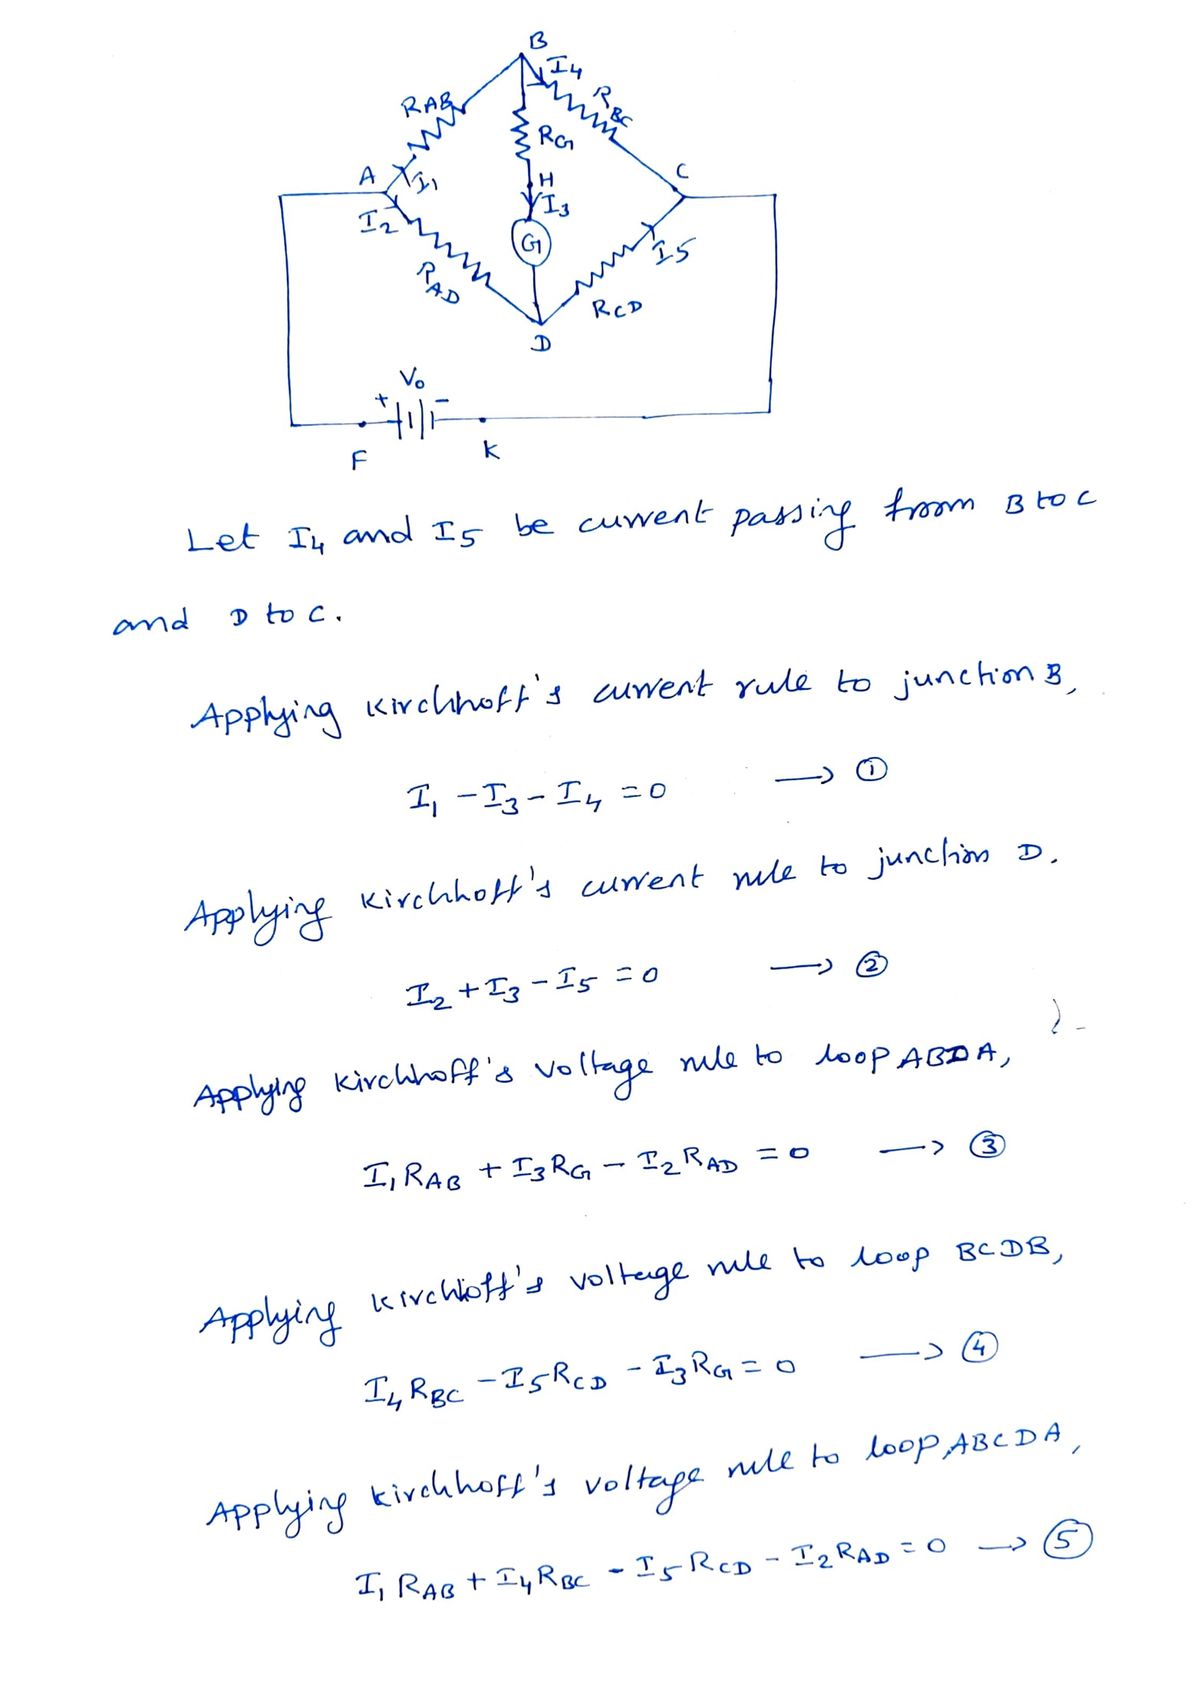 B
I4
RAB
RBC
RG
A
I1
H
C
I2
I3
G
I5
RAD
RCD
D
V0
+ -
F
K
Let I4 and I5 be current passing from B to C
and D to C.
Applying Kirchhoff's current rule to junction B,
I1 - I3 - I4 = 0 → ①
Applying Kirchhoff's current rule to junction D.
I2 + I3 - I5 = 0 → ②
Applying Kirchhoff's voltage rule to loop ABDA,
I1RAB + I3RG - I2RAD = 0 → ③
Applying Kirchhoff's voltage rule to loop BCDB,
I4RBC - I5RCD - I3RG = 0 → ④
Applying Kirchhoff's voltage rule to loop ABCDA,
I1RAB + I4RBC - I5RCD - I2RAD = 0 → ⑤